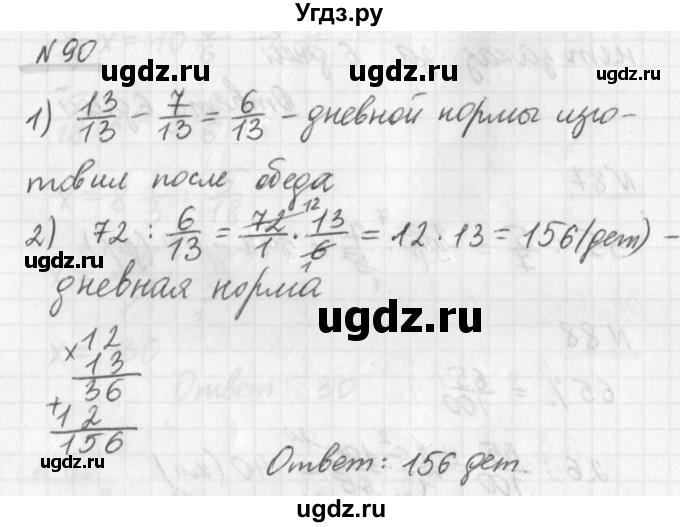 Угдз.ру
№90
ugdz.ru ugdz.ru
1) 13/13 - 7/13 = 6/13 - дневной нормы изго-
товил после обеда
2) 72 : 6/13 = 72/1 · 13/6 = 12 · 13 = 156 (дет) -
12
1
дневная норма
ugdz.ru
× 12
13
36
+ 12
156
ugdz.ru
Ответ: 156 дет.
ugdz.ru